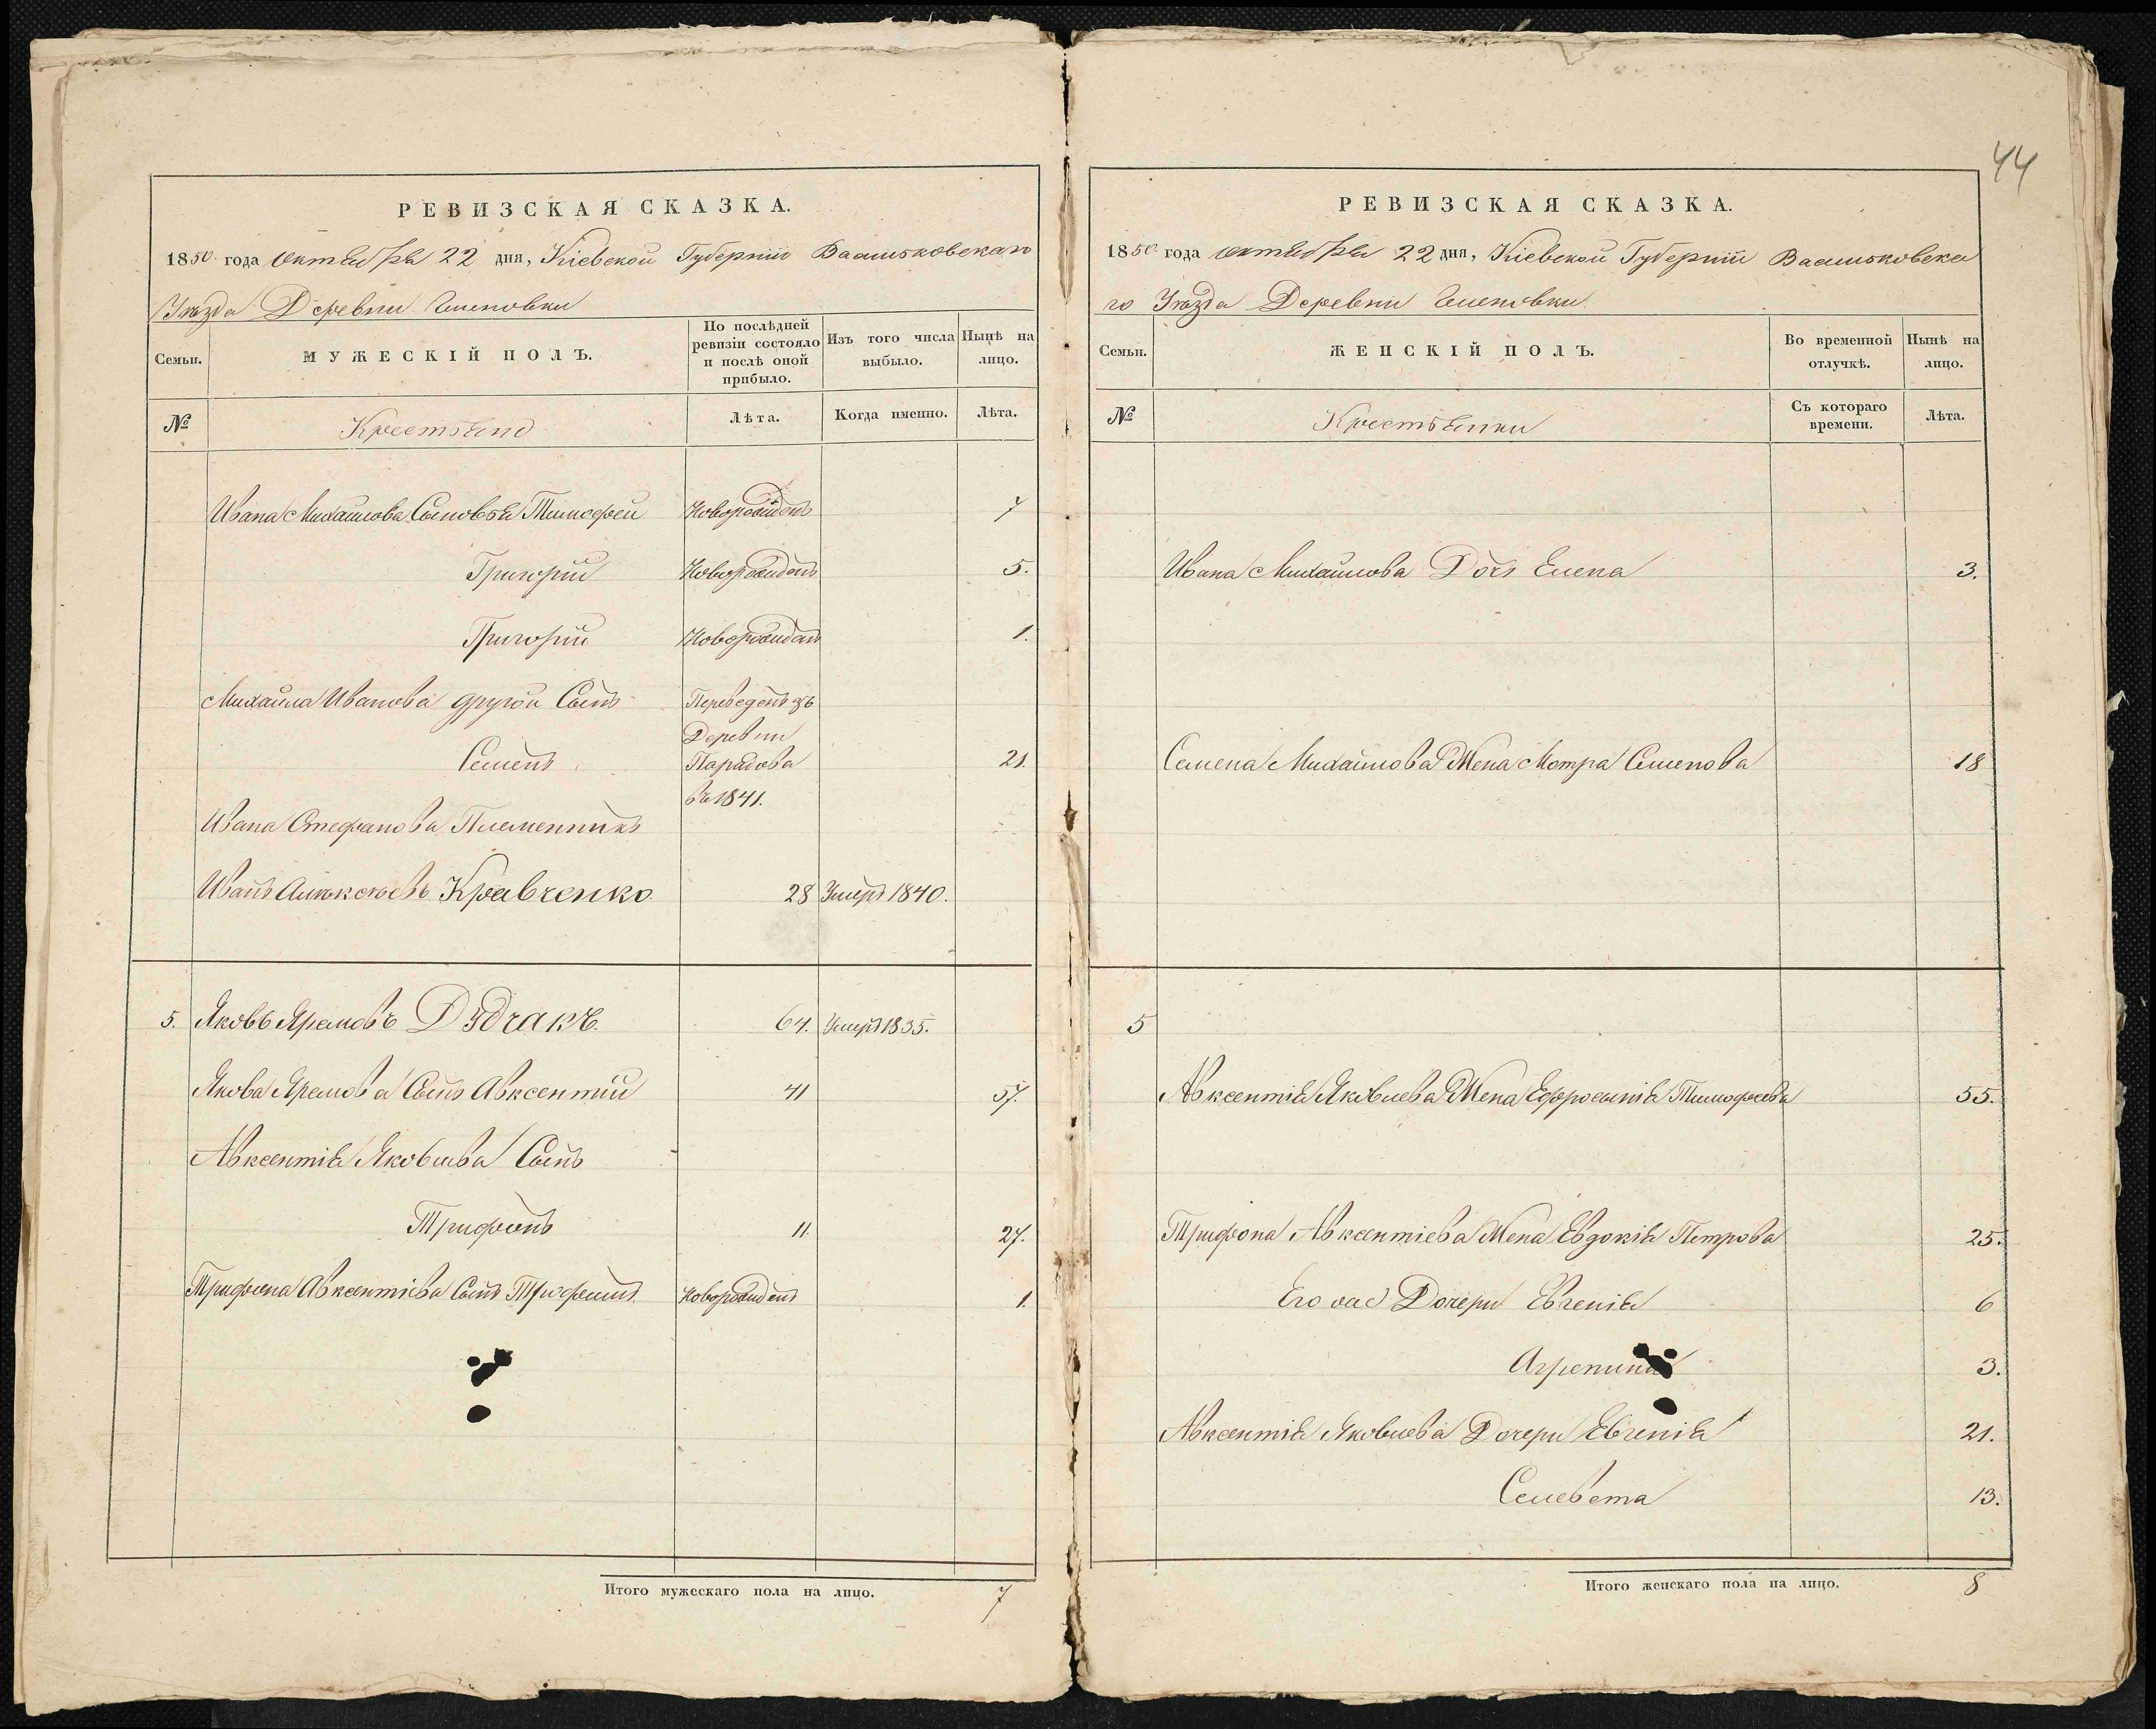 44
РЕВИЗСКАЯ СКАЗКА.
1850 года октября 22 дня, Кіевской Губерніи Васильковскаго
Уѣзда Деревни
Семьи.
МУЖЕСКІЙ ПОЛЪ.
По послѣдней
ревизіи состояло
и послѣ оной
прибыло.
Изъ того числа
выбыло.
Нынѣ на
лицо.
№
Крестьяне
Лѣта.
Когда именно.
Лѣта.
Ивана Михайлова Сыновья Тимофей Новорожденъ 7
Григорій Новорожденъ 5.
Григорій Новорожденъ 1.
Михайла Иванова другой Сынъ Переведенъ изъ
Деревни
Семенъ Парадова 21.
въ 1841.
Ивана Стефанова Племенникъ
Иванъ Алѣксѣевъ Кравченко 28 Умеръ 1840.
5. Яковъ Яремовъ Дудчакъ 64. Умеръ 1835.
Якова Яремова Сынъ Авксентій 41 57.
Авксентія Яковлева Сынъ
Трифонъ 11. 27.
Трифона Авксентіева Сынъ Трофимъ Новорожденъ 1.
Итого мужескаго пола на лицо. 7
РЕВИЗСКАЯ СКАЗКА.
1850 года октября 22 дня, Кіевской Губерніи Васильковска
го Уѣзда Деревни
Семьи.
ЖЕНСКІЙ ПОЛЪ.
Во временной
отлучкѣ.
Нынѣ на
лицо.
№
Крестьянки
Съ котораго
времени.
Лѣта.
Ивана Михайлова Дочь Елена 3.
Семена Михайлова Жена Мотра Семенова 18
5
Авксентія Яковлева Жена Ефросинія Тимофеева 55.
Трифона Авксентіева Жена Евдокія Петрова 25.
Его Дочери Евгенія 6
3.
Авксентія Яковлева Дочери Евгенія 21.
Селевета 13.
Итого женскаго пола на лицо. 8